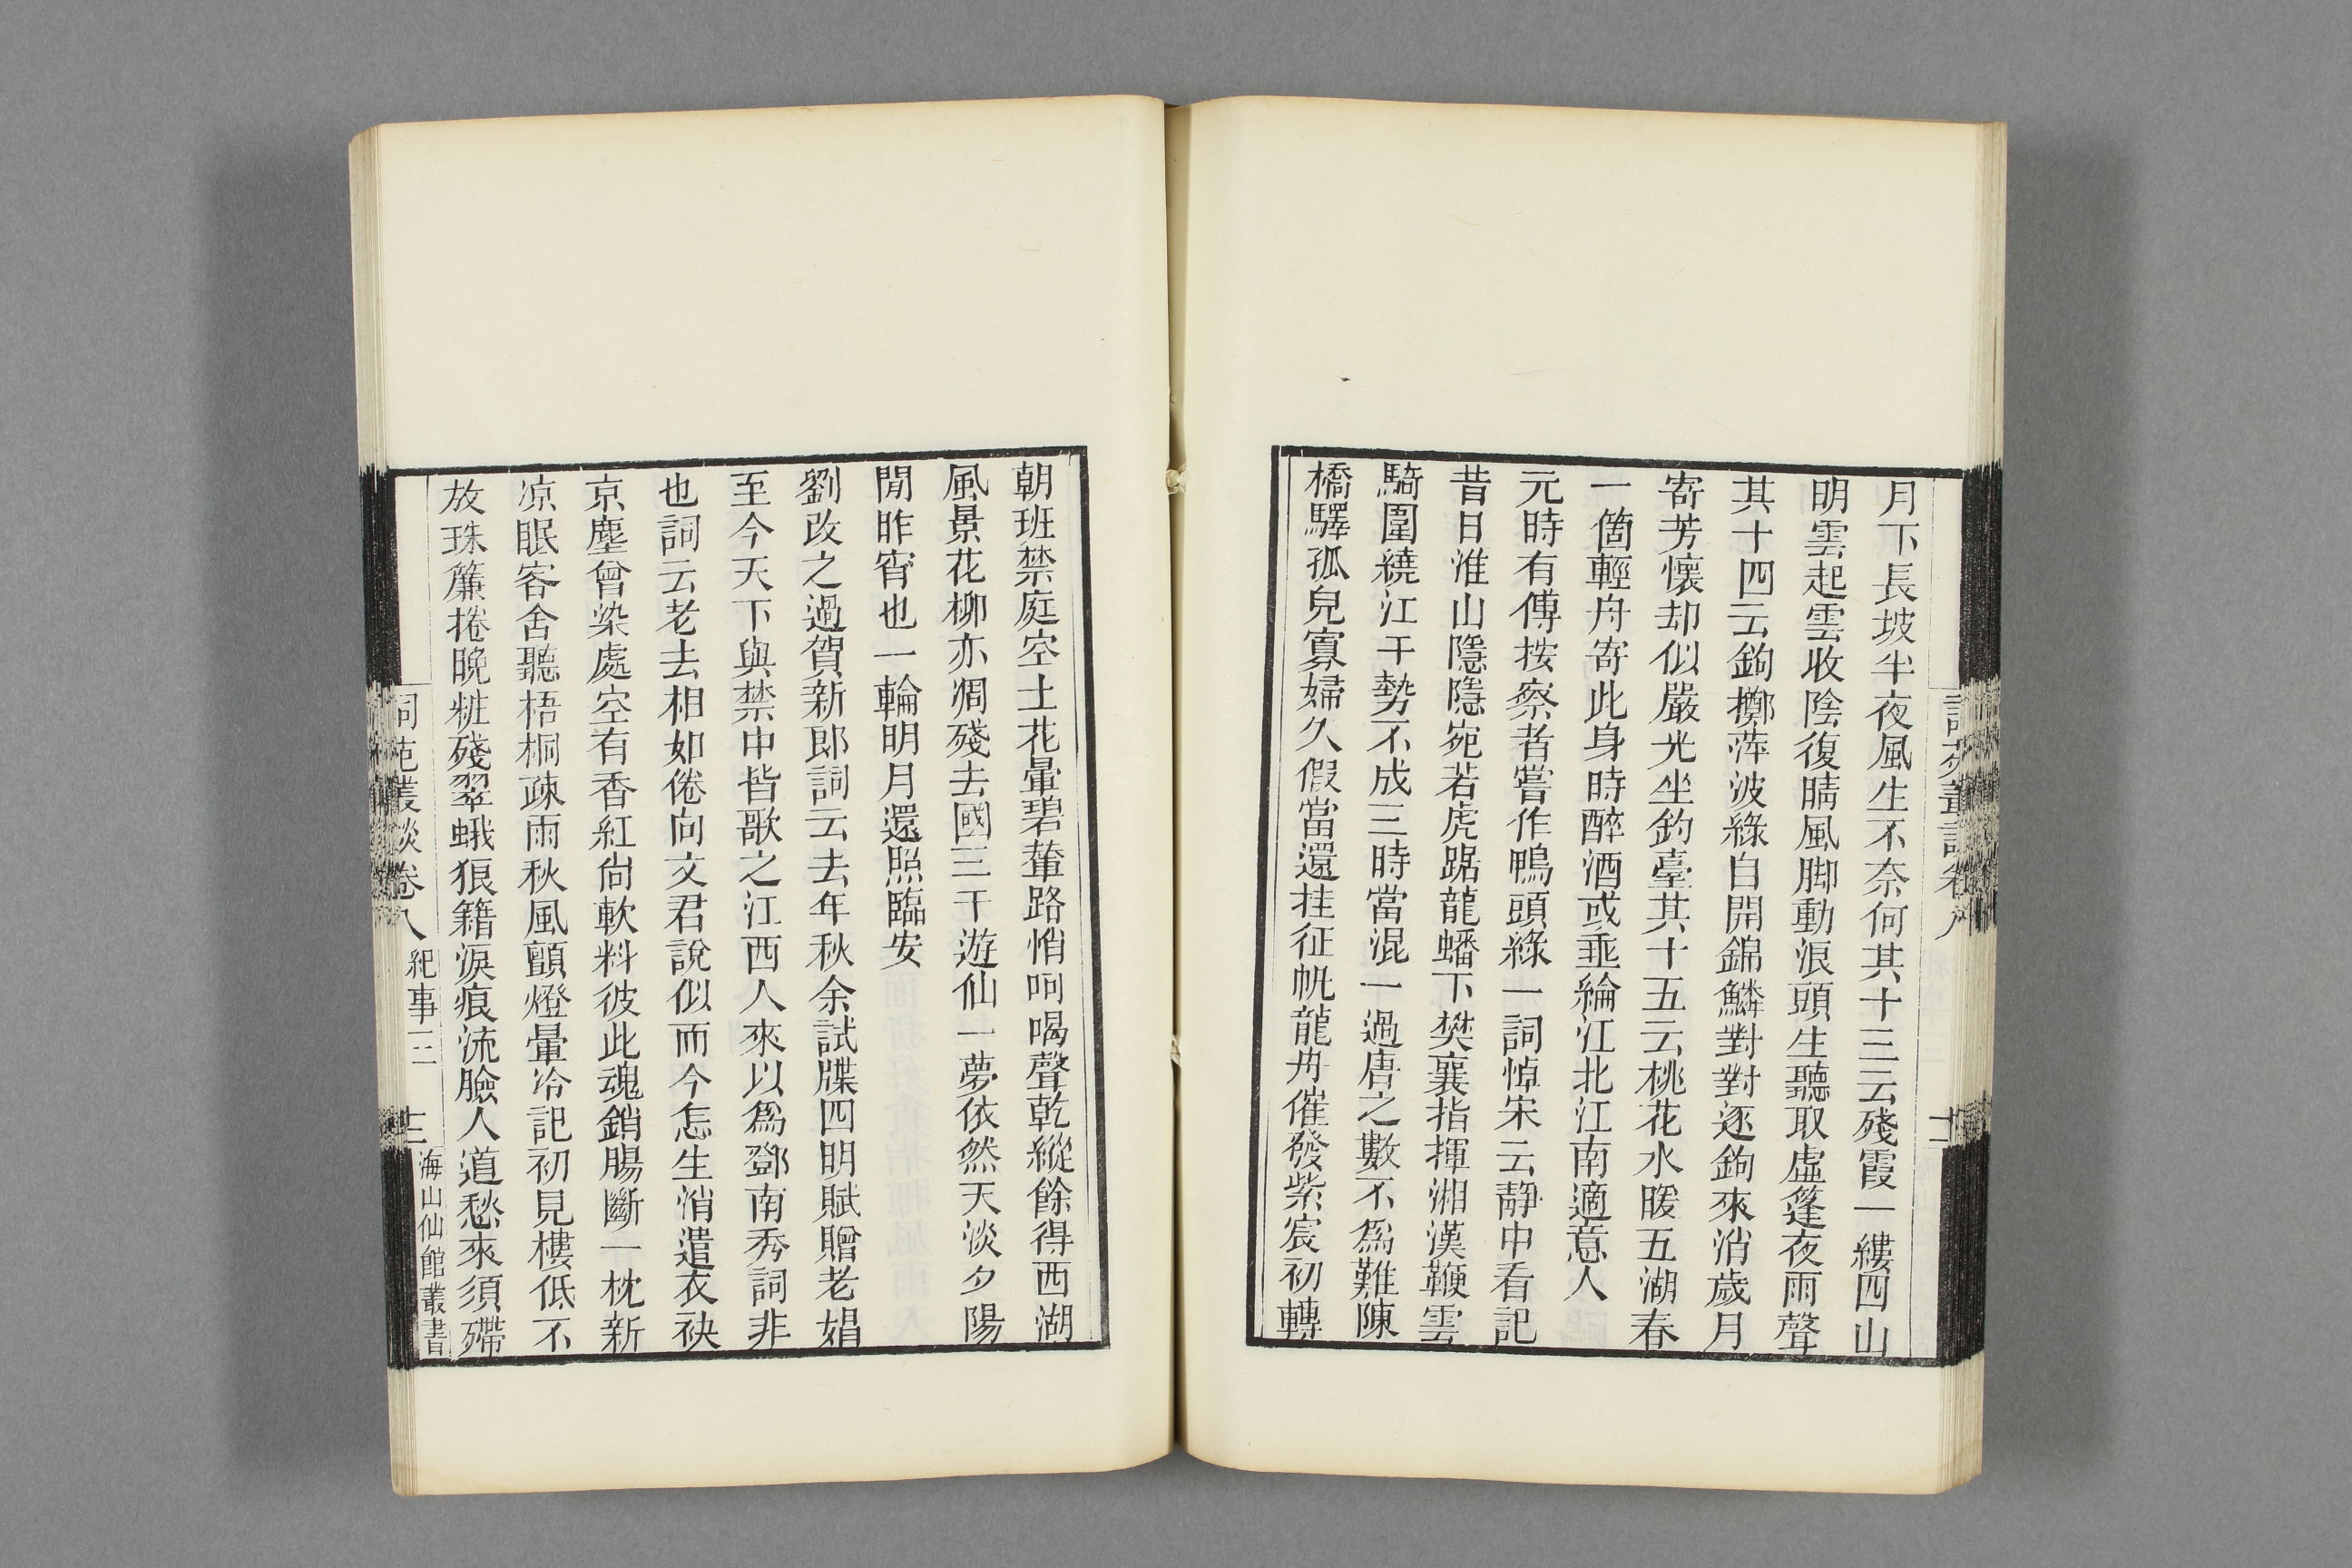 月下長坡半夜風生不奈何其十三云殘霞一縷四山
明雲起雲收陰復晴風脚動浪頭生聽取虛篷夜雨聲
其十四云鉤擲萍波綠自開錦鱗對對逐鉤來消歲月
寄芳懷却似嚴光坐釣臺其十五云桃花水暖五湖春
一箇輕舟寄此身時醉酒或垂綸江北江南適意人
元時有傅按察者嘗作鴨頭綠一詞悼宋云靜中看記
昔日淮山隱隱宛若虎踞龍蟠下樊襄指揮湘漢鞭雲
騎圍繞江干勢不成三時當混一過唐之數不爲難陳
橋驛孤兒寡婦久假當還挂征帆龍舟催發紫宸初轉
朝班禁庭空土花暈碧輦路悄呵喝聲乾縱餘得西湖
風景花柳亦凋殘去國三千遊仙一夢依然天淡夕陽
閒昨宵也一輪明月還照臨安
劉改之過賀新郎詞云去年秋余試牒四明賦贈老娼
至今天下與禁中皆歌之江西人來以爲鄧南秀詞非
也詞云老去相如倦向文君說似而今怎生消遣衣袂
京塵曾染處空有香紅尙軟料彼此魂銷腸斷一枕新
凉眠客舍聽梧桐疎雨秋風顫燈暈冷記初見樓低不
放珠簾捲晚粧殘翠蛾狼籍淚痕流臉人道愁來須殢
詞苑叢談卷八 紀事三 十二 海山仙館叢書